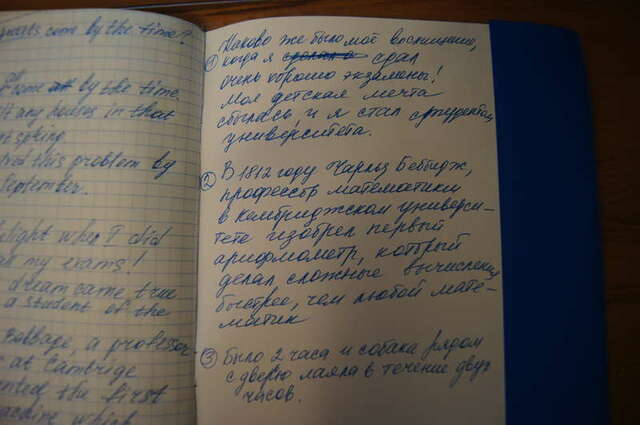 grants come by the time?
home by the time.
any houses in that
spring
this problem by
September.
delight when I did
my exams!
dream came true
a student of the
Babbage, a professor
at Cambrige
the first
machine which
① Каково же было моё восхищение,
когда я сдал
очень хорошо экзамены!
Моя детская мечта
сбылась, и я стал студентом
университета.
② В 1812 году Чарльз Беббидж,
профессор математики
в Кембриджском универси-
тете изобрел первый
арифмометр, который
делал сложные вычисления
быстрее, чем любой мате-
матик
③ Было 2 часа и собака рядом
с дверью лаяла в течение двух
часов.